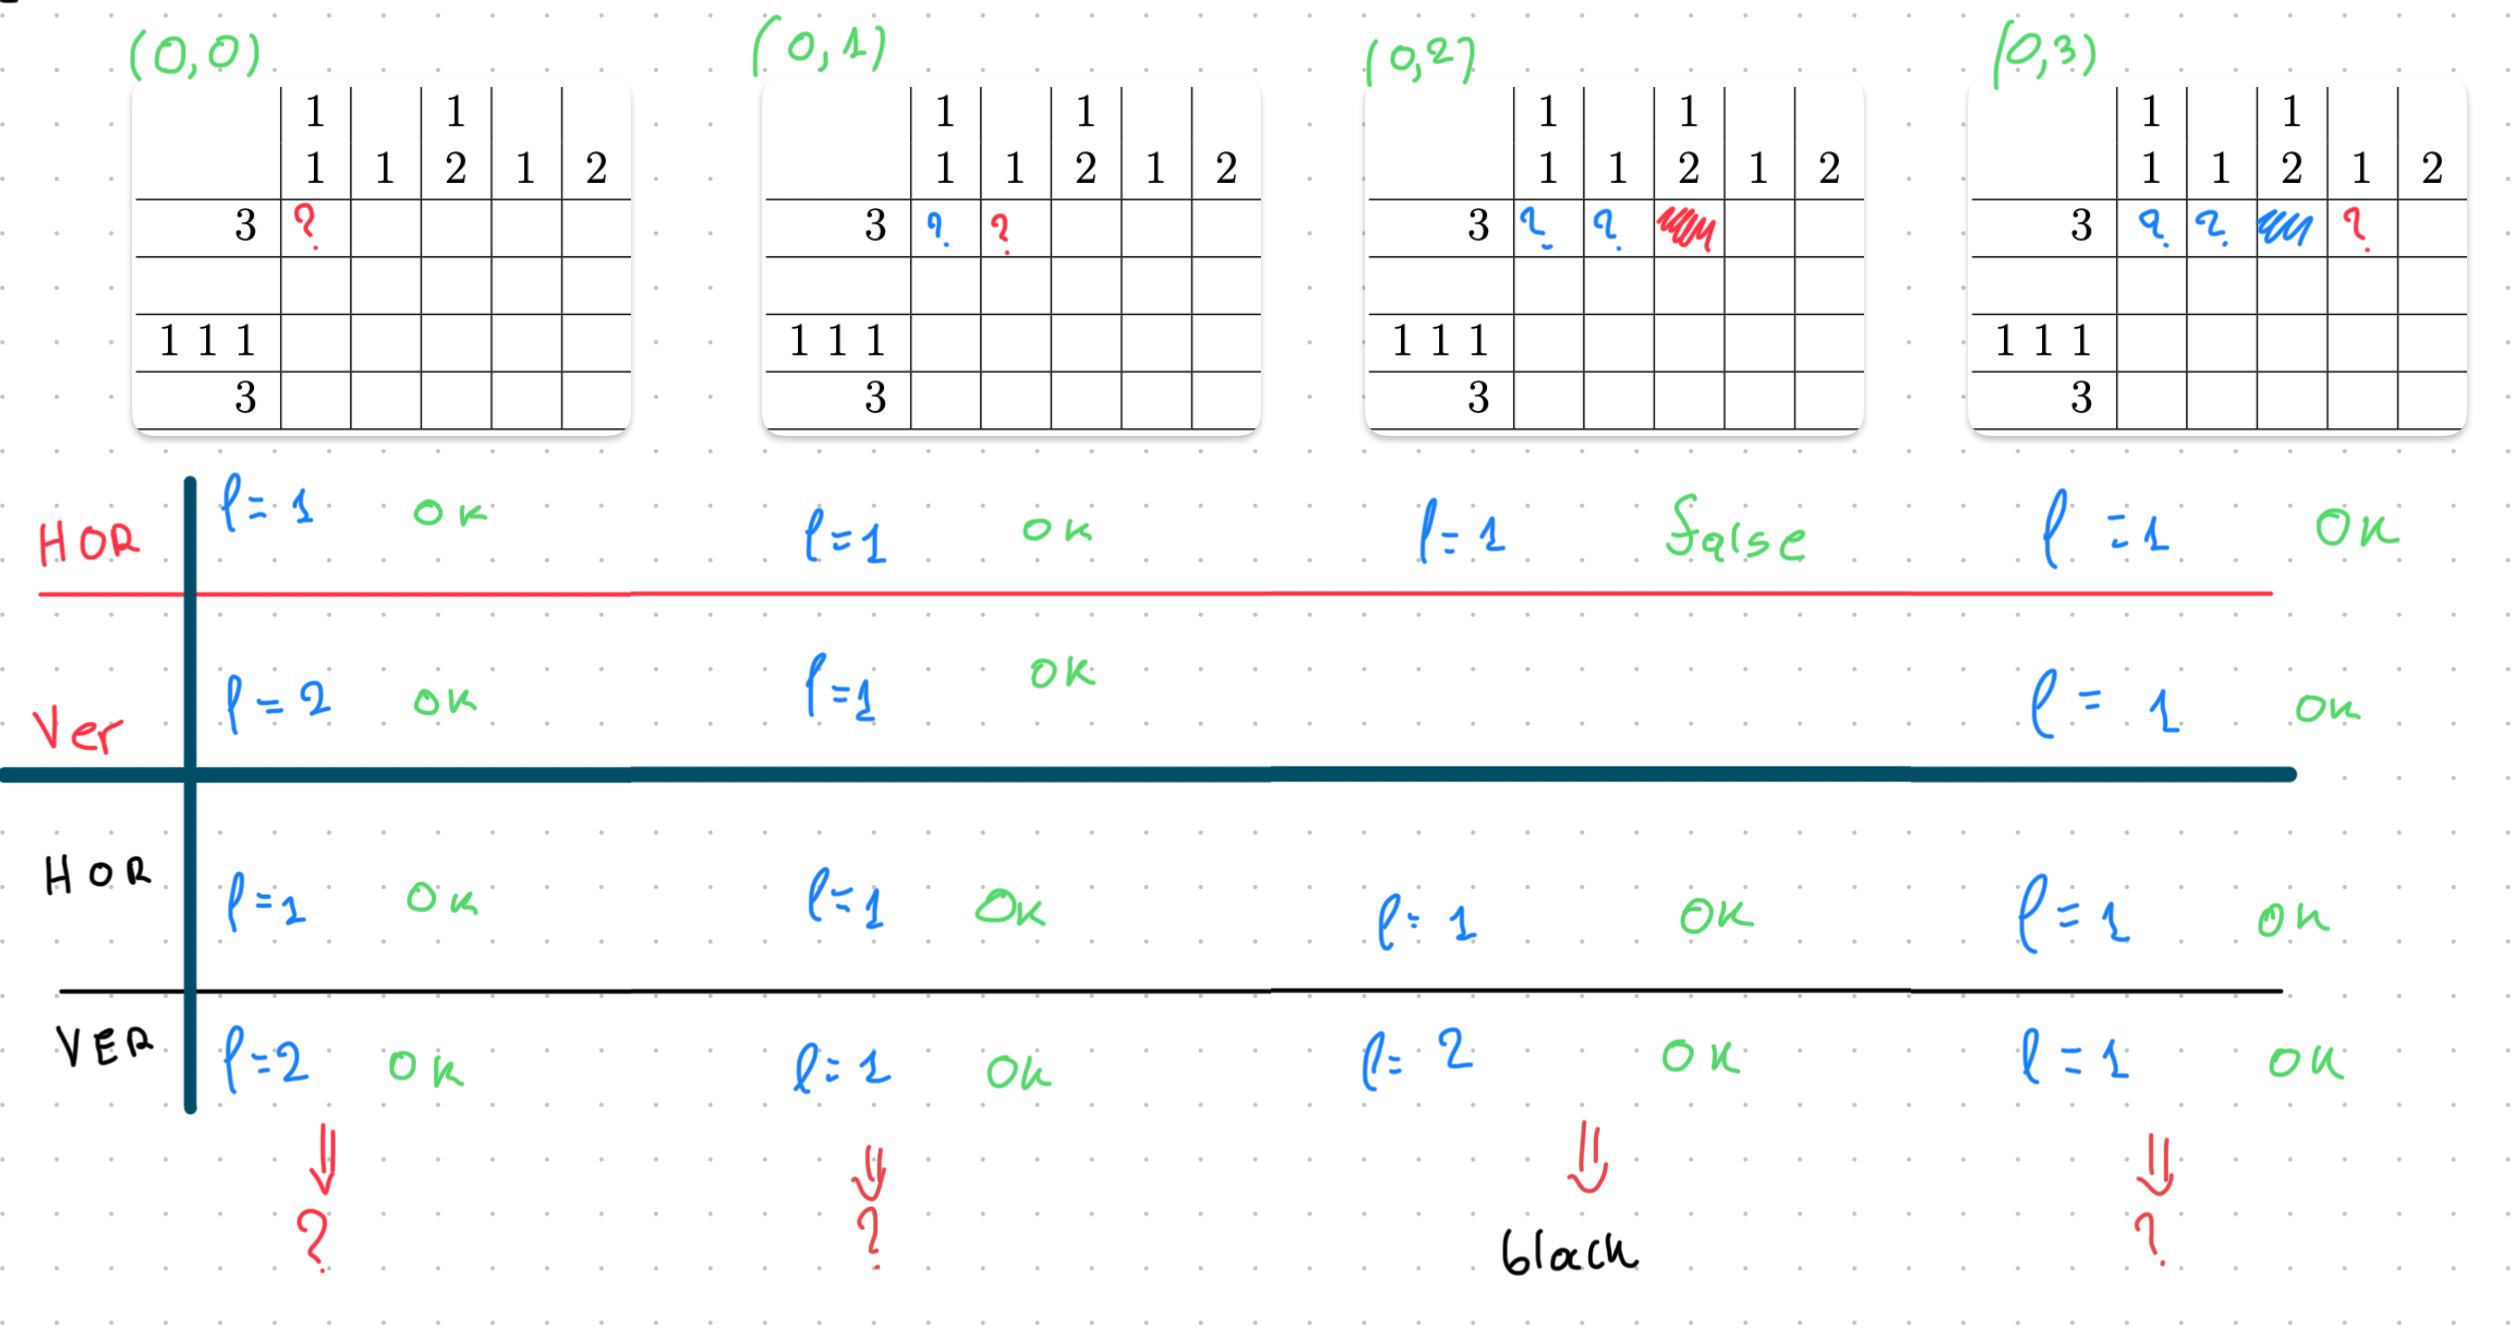 (0,0) (0,1) (0,2) (0,3)
1 1 1 1 1 1 1 1
1 1 2 1 2 1 1 2 1 2 1 1 2 1 2 1 1 2 1 2
3 ? 3 ? ? 3 ? ? 3 ? ? ?
1 1 1 1 1 1 1 1 1 1 1 1
3 3 3 3
HOR l=1 ok l=1 ok l=1 false l=1 ok
Ver l=2 ok l=1 ok l=1 ok
HOR l=1 ok l=1 ok l=1 ok l=1 ok
VER l=2 ok l=1 ok l=2 ok l=1 ok
⇓ ⇓ ⇓ ⇓
? ? black ?